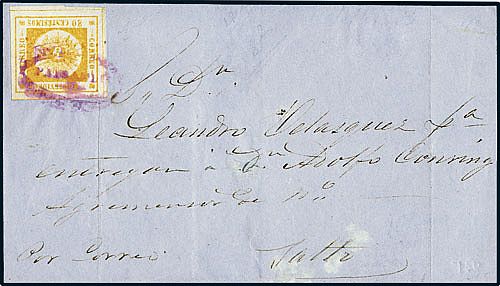 80 CENTESIMOS
CORREO
S. Dn
Leandro Velasquez pa
entregar à Dn Adolfo Conring
Agrimensor de No
Por Correo Salto